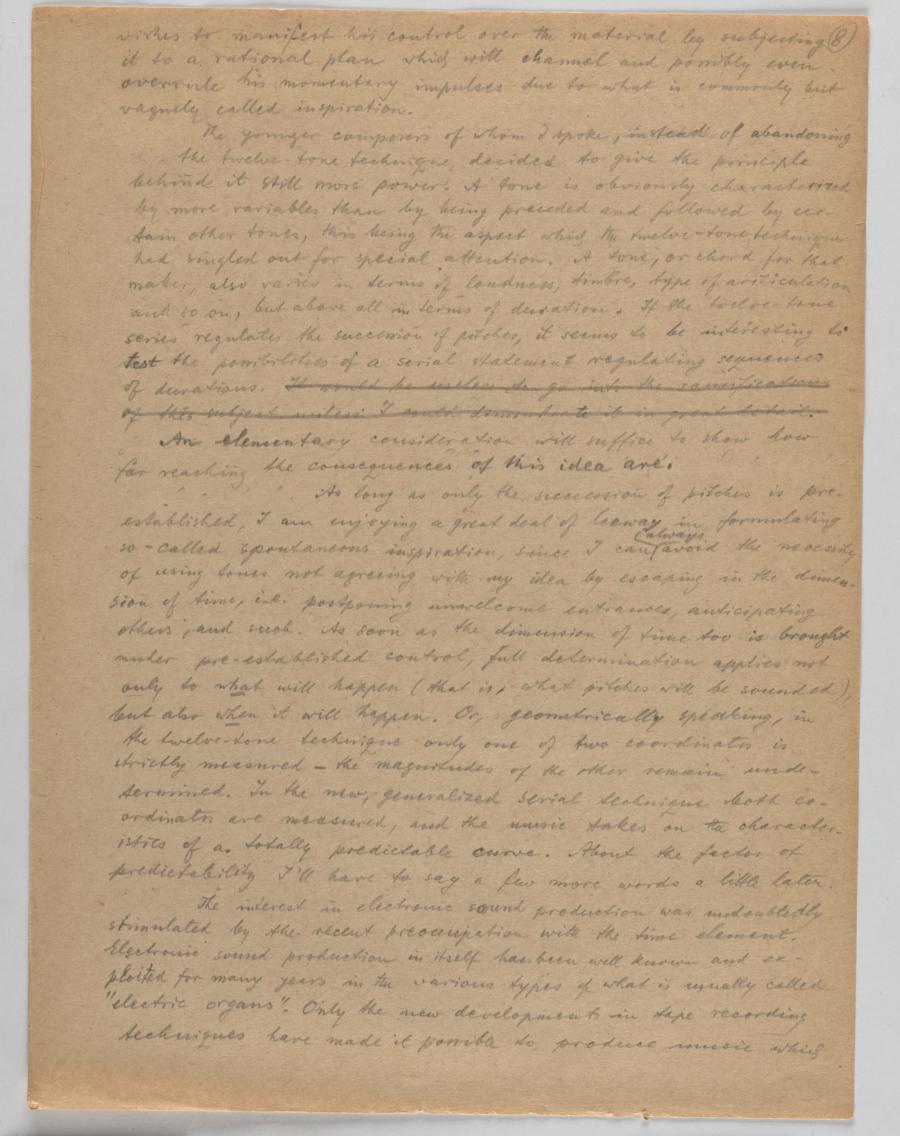 wishes to manifest his control over the material by subjecting (8)
it to a rational plan which will channel and possibly even
overrule his momentary impulses due to what is commonly but
vaguely called inspiration.
The younger composers of whom I spoke, instead of abandoning
the twelve-tone technique, decided to give the principle
behind it still more power. A tone is obviously characterized
by more variables than by being preceded and followed by cer-
tain other tones, this being the aspect which the twelve-tone technique
had singled out for special attention. A tone, or chord for that
maker, also varies in terms of loudness, timbre, type of articulation
and so on, but above all in terms of duration. If the twelve-tone
series regulates the succession of pitches, it seems to be interesting to
test the possibilities of a serial statement regulating sequences
of durations. It would be useless to go into the ramifications
of this subject unless I could demonstrate it in great detail.
An elementary consideration will suffice to show how
far reaching the consequences of this idea are:
As long as only the succession of pitches is pre-
established, I am enjoying a great deal of leeway in formulating
always
so-called spontaneous inspiration, since I can avoid the necessity
of using tones not agreeing with my idea by escaping in the dimen-
sion of time, i.e. postponing unwelcome entrances, anticipating
others, and such. As soon as the dimension of time too is brought
under pre-established control, full determination applies not
only to what will happen (that is, what pitches will be sounded),
but also when it will happen. Or, geometrically speaking, in
the twelve-tone technique only one of two coordinates is
strictly measured – the magnitudes of the other remain unde-
termined. In the new, generalized serial technique both co-
ordinates are measured, and the music takes on the character-
istics of a totally predictable curve. About the factor of
predictability I'll have to say a few more words a little later.
The interest in electronic sound production was undoubtedly
stimulated by the recent preoccupation with the time element.
Electronic sound production in itself has been well known and ex-
ploited for many years in the various types of what is usually called
"electric organs". Only the new developments in tape recording
techniques have made it possible to produce music which